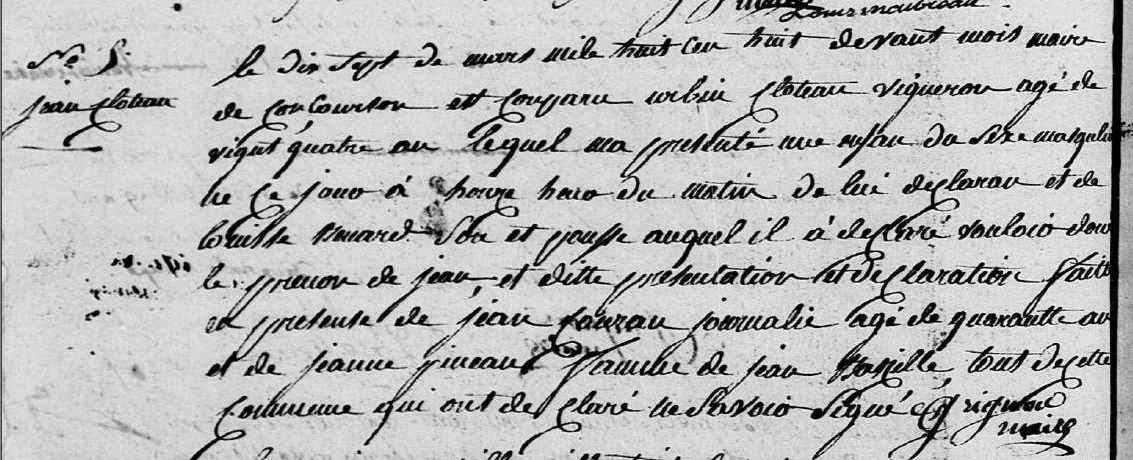 No 5
jean cloteau
le dix Sept de mars mile huit cen huit devant mois maire
de concourson est conparu urbin cloteau vigneron agé de
vignt quatre an lequel ma presenté une enfan du Sexe masqulin
ne ce jour à honze heur du matin de lui declaran et de
louisse Son et pousse auquel il à declaré vouloir donné
le prenon de jean, et ditte presentation et declaration faitte
en presense de jean journalié agé de quarantte an
et de jeanne pineau famme de jean tout de cette
commune qui ont declaré ne Savoir Signé
maire